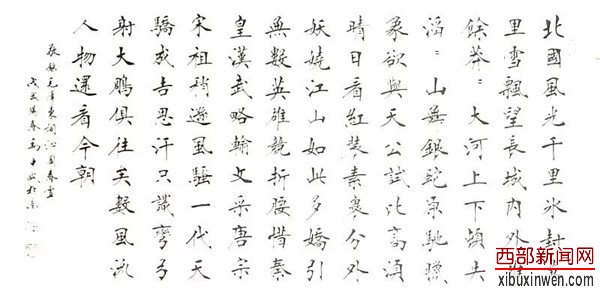 北國風光千里冰封
里雪飄望長城內外惟
餘莽〻大河上下頓失
滔〻山舞銀蛇原馳臘
象欲與天公試比高須
晴日看紅裝素裹分外
妖嬈江山如此多嬌引
無數英雄競折腰惜秦
皇漢武略輸文采唐宗
宋祖稍遜風騷一代天
驕成吉思汗只識彎弓
射大鵰俱往矣數風流
人物還看今朝
錄毛澤東詞沁園春雪
春
西部新闻网
xibuxinwen.com